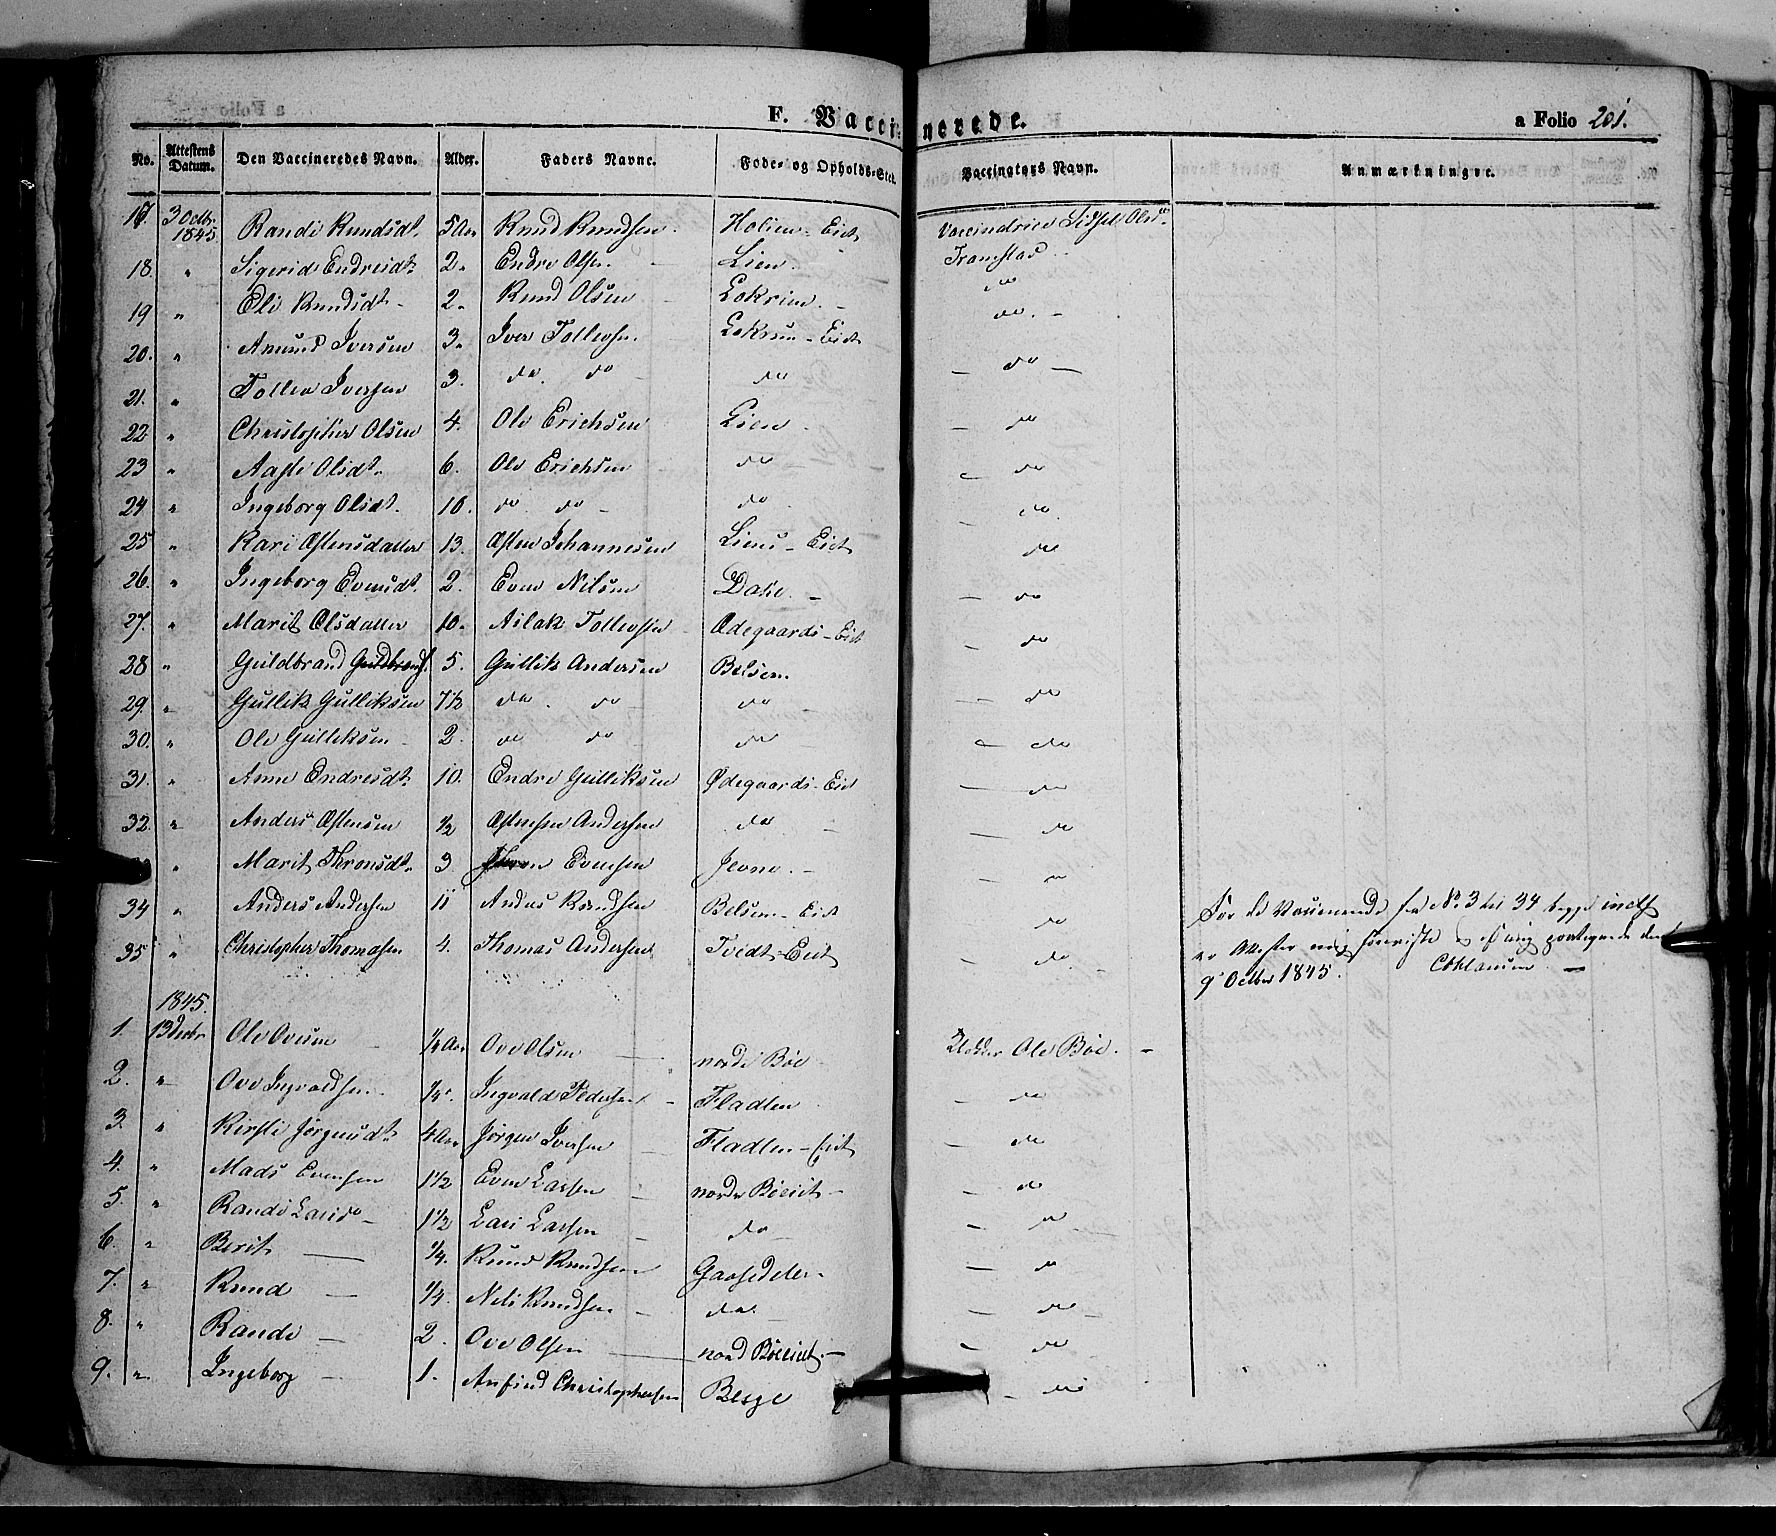 F. Vaccinerede. a Folio 201.
No. Attestens Datum. Den Vaccineredes Navn. Alder. Faders Navne. Føde- og Opholds-Sted. Vaccinators Navn. Anmærkninger.
17. 3 Octbr. 1845. Randi Knudsdt. 5 Aar Knud Knudsen Holien-Eiet Vaccindrice Sidsel Olsd.
18. " Sigerid Endresdt. 2. Endre Olsen Lien.
19 " Eli Knudsdt. 2. Knud Olsen do. -
20. " Amund Iversen 3. Iver Tollevsen - Eiet
21. " Tollev Iversen 3. do. do do - do -
22 " Christopher Olsen 4. Ole Erichsen Lien - do
23 " Olsdt. 6. Ole Erichsen do do
24 " Ingeborg Olsdt. 10. do do - do - do
25 " Kari Østensdatter 13. Østen Johannesen Liens-Eiet do
26. " Ingeborg Evensdt. 2. Even Nilsen - do
27. " Marit Olsdatter 10. Aslak Tollevsen Ødegaards-Eiet - do
28 " Guldbrand 5. Gullik Andersen - do
29. " Gullik Gulliksen 7½ do. do do - do
30. " Ole Gulliksen 2. do do do - do
31. " Anne Endresdt. 10. Endre Gulliksen Ødegaards-Eiet - do
32. " Anders Østensen ½ Østensen Andersen do - do
" Marit Thronsdt. 3 Evensen Jevne. - - do
34 " Anders Andersen 11 Anders Knudsen - Eiet do For de Vaccinerede fra No. 3 til 34 begge incl.
35 " Christopher Thomasen 4. Thomas Andersen Tvedt-Eiet - do er Attester mig foreviste
9 October 1845.
1845.
1. 13 Decbr. Ole Ovesen ¼ Aar Ove Olsen nordre Bøe Klokker Ole Bøe. -
2. " Ove Ingvaldsen ¼. Ingvald Pedersen - Fladlen - do
3. " Kirsti Jørgensdt. 4 Aar Jørgen Iversen Fladlen-Eiet - do
4. " Mads Evensen 1½ Even Larsen nordre Bøeiet - - do
5. " Randi Larsd. 1½ Lars Larsen - do - - do
6. " Berit ¼. Knud Knudsen - do
7. " Knud ¼. Nils Knudsen - do. - do
8. " Randi - 2. Ove Olsen nord Bøeiet. - - do
9. " Ingeborg - 1. Anfind Christophersen - do